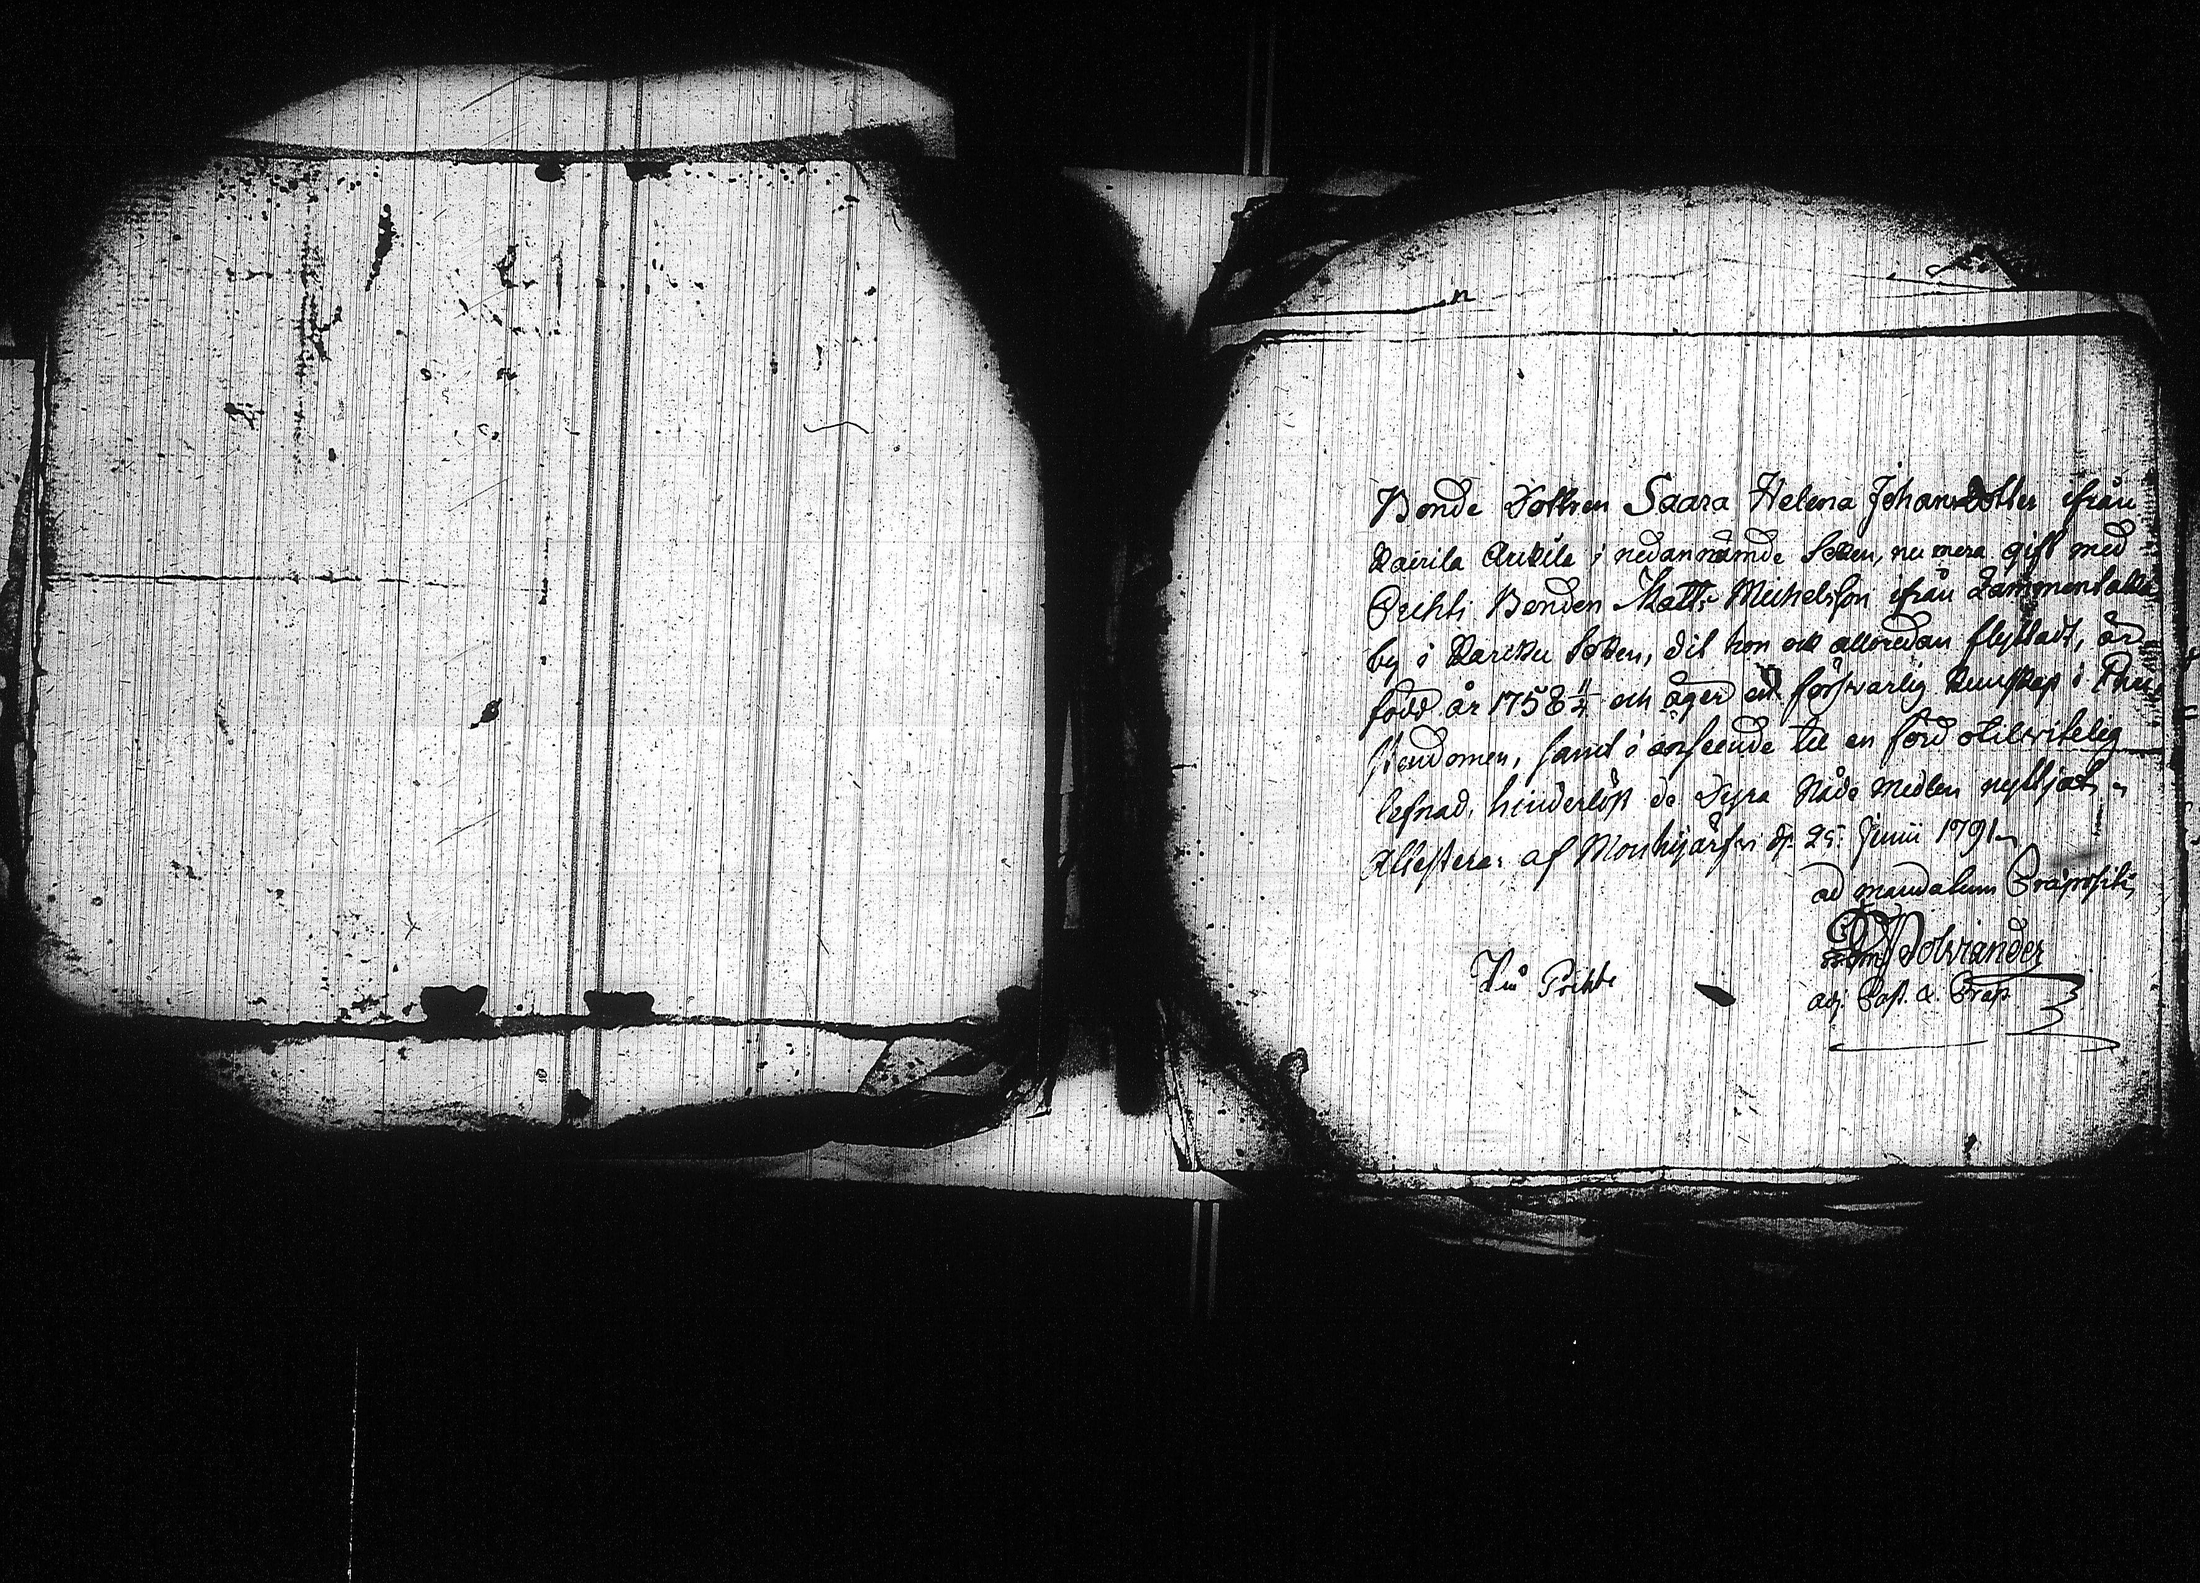 Bonde Dottren Saara Helena Johansdotter ifrån
Kairila Anttila i nedannämde Socken, nu mera gift med
Prihti Bonden Matts Michelsson ifrån Lammentakka
by i Karcku Socken, dit hon ock alloredan flyttadt, är
född år 1758 11/4 och äger en försvarlig kunskap i Chri
stendomen, samt i anseende til en förd otilvitelig
lefnad, hinderlöst de Dyra Nåde medlen nyttjat,
Attesteras af Mouhijärfvi d. 25. Junii 1791
ad mandatum Præpositi,
Polviander
adj. Past. & Præp.
Prihti